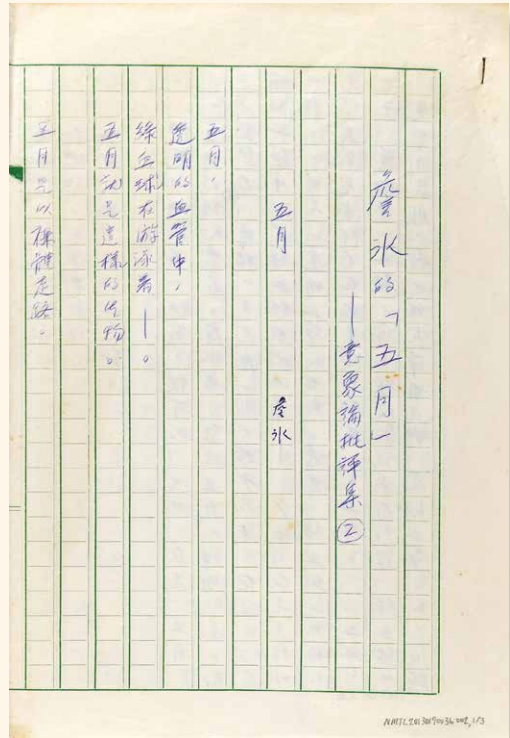 詹冰的「五月」
——意象論批評集②
五月　詹冰
五月，
透明的血管中，
綠血球在游泳著——。
五月就是這樣的生物。
五月是以裸體走路。
NMTL20130190036-002, 1/3